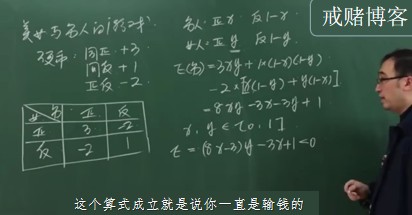 戒赌博客
美女与名人的游戏
硬币：同正+3
同反+1
正反-2
女 名 正 反
正 3 -2
反 -2 1
名人：正x 反1-x
女人：正y 反1-y
E(名)=3xy+1×(1-x)(1-y)
-2×[x(1-y)+y(1-x)]
=8xy-3x-3y+1
x, y ∈ [0, 1]
E=(8x-3)y-3x+1<0
这个算式成立就是说你一直是输钱的